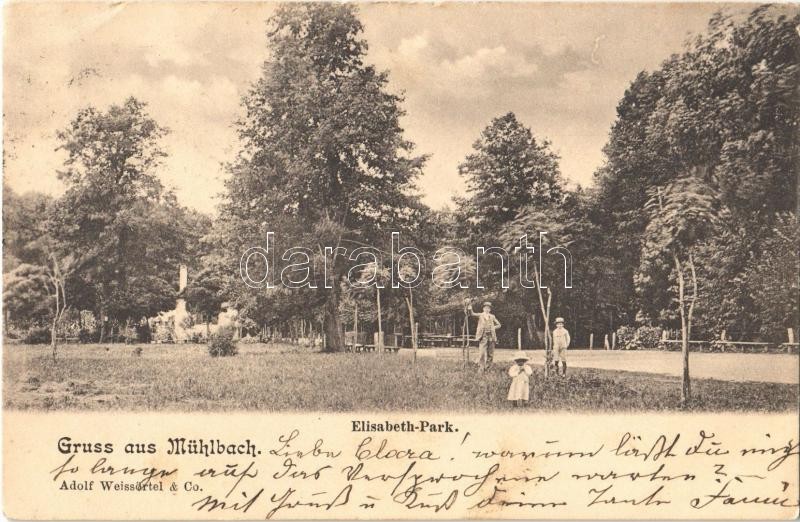 darabanth
Elisabeth-Park.
Gruss aus Mühlbach. Liebe Clara! warum läßt Du mich
so lange auf das Versprochene warten?
Adolf Weissörtel & Co.
Mit Gruß u Kuß Deine Tante Fanni